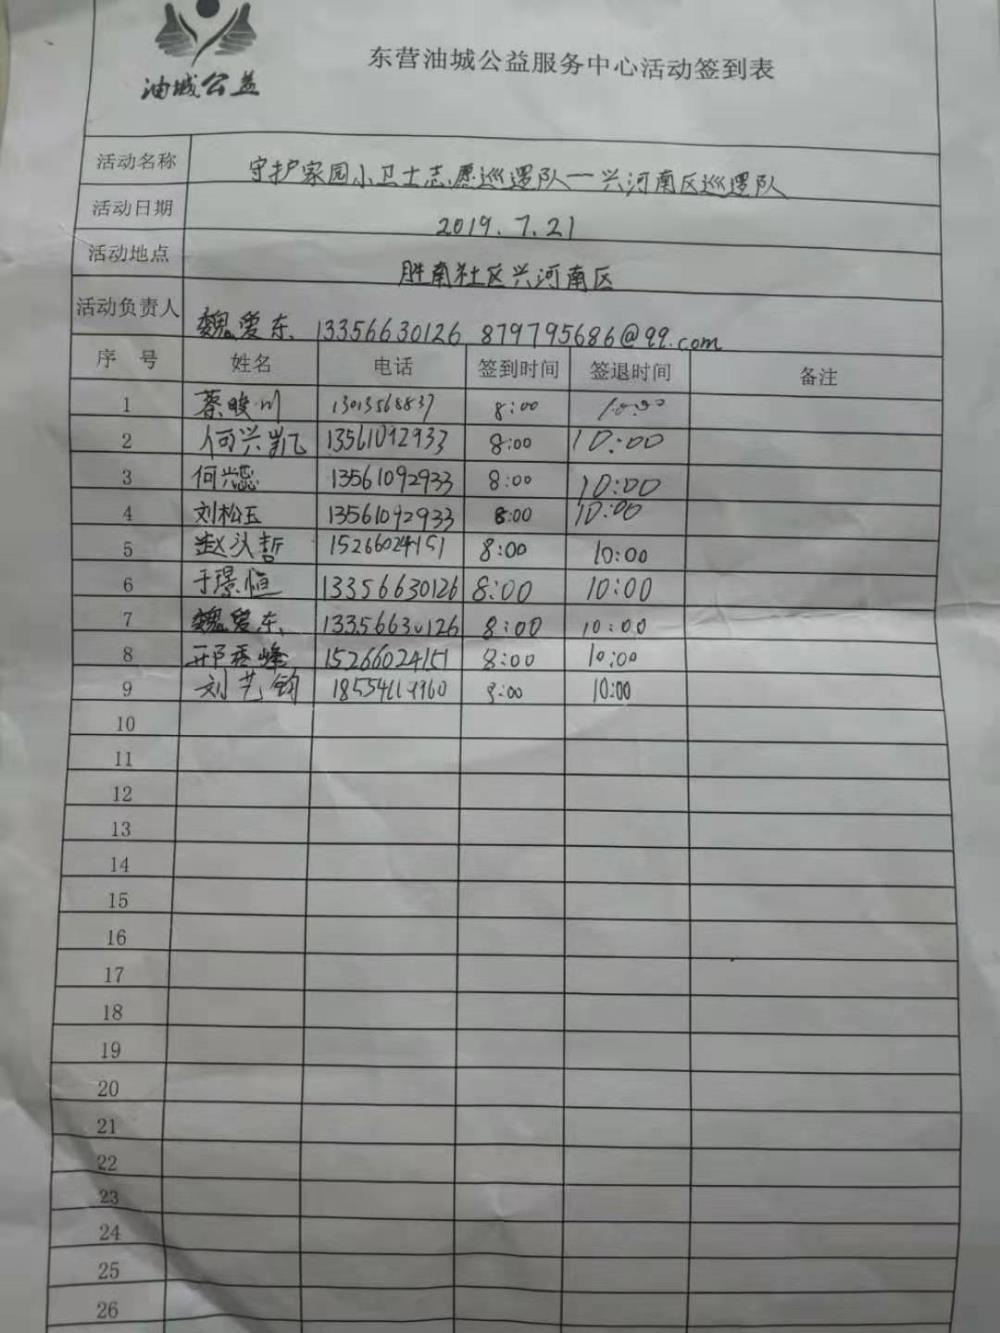 油城公益
东营油城公益服务中心活动签到表
活动名称 守护家园小卫士志愿巡逻队—兴河南区巡逻队
活动日期 2019.7.21
活动地点 胜南社区兴河南区
活动负责人 魏爱东 13356630126 879795686@qq.com
序号 姓名 电话 签到时间 签退时间 备注
1 蔡晙川 13013568837 8:00 10:00
2 何兴凯 13561092933 8:00 10:00
3 何兴蕊 13561092933 8:00 10:00
4 刘松玉 13561092933 8:00 10:00
5 赵 哲 15266024151 8:00 10:00
6 于璟恒 13356630126 8:00 10:00
7 魏爱东 13356630126 8:00 10:00
8 邢秀峰 15266024151 8:00 10:00
9 刘艺钧 8:00 10:00
10
11
12
13
14
15
16
17
18
19
20
21
22
23
24
25
26